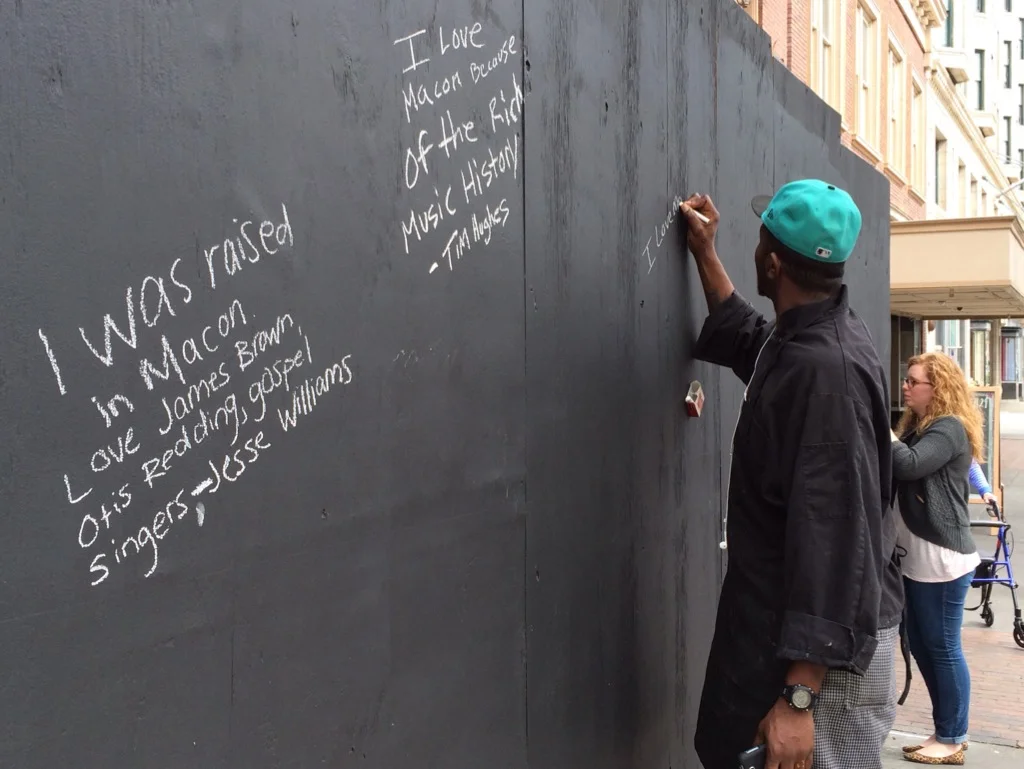 I Love
Macon Because
Of the Rich
Music History
- Tim Hughes
I was raised
in Macon.
Love James Brown,
Otis Redding, gospel
singers - Jesse Williams
I Love